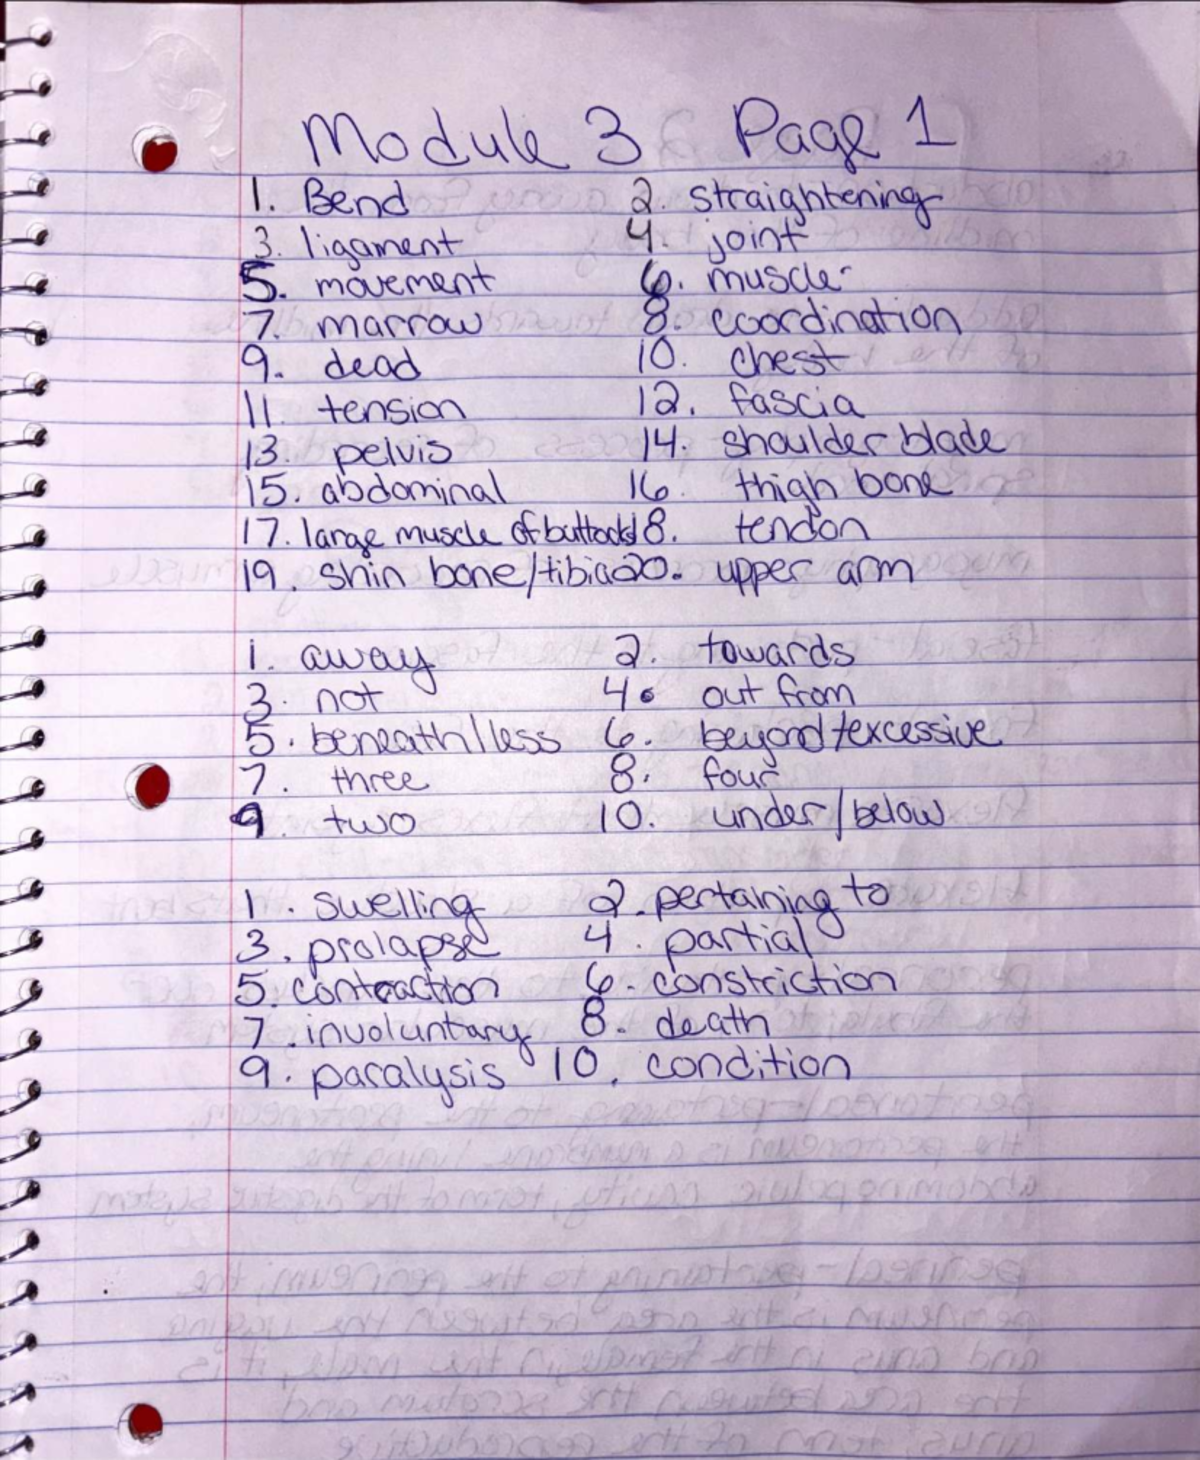 Module 3 Page 1
1. Bend 2. straightening
3. ligament 4. joint
5. movement 6. muscle
7. marrow 8. coordination
9. dead 10. chest
11. tension 12. fascia
13. pelvis 14. shoulder blade
15. abdominal 16. thigh bone
17. large muscle of buttocks 18. tendon
19. shin bone/tibia 20. upper arm
1. away 2. towards
3. not 4. out from
5. beneath/less 6. beyond/excessive
7. three 8. four
9. two 10. under/below
1. swelling 2. pertaining to
3. prolapse 4. partial
5. contraction 6. constriction
7. involuntary 8. death
9. paralysis 10. condition